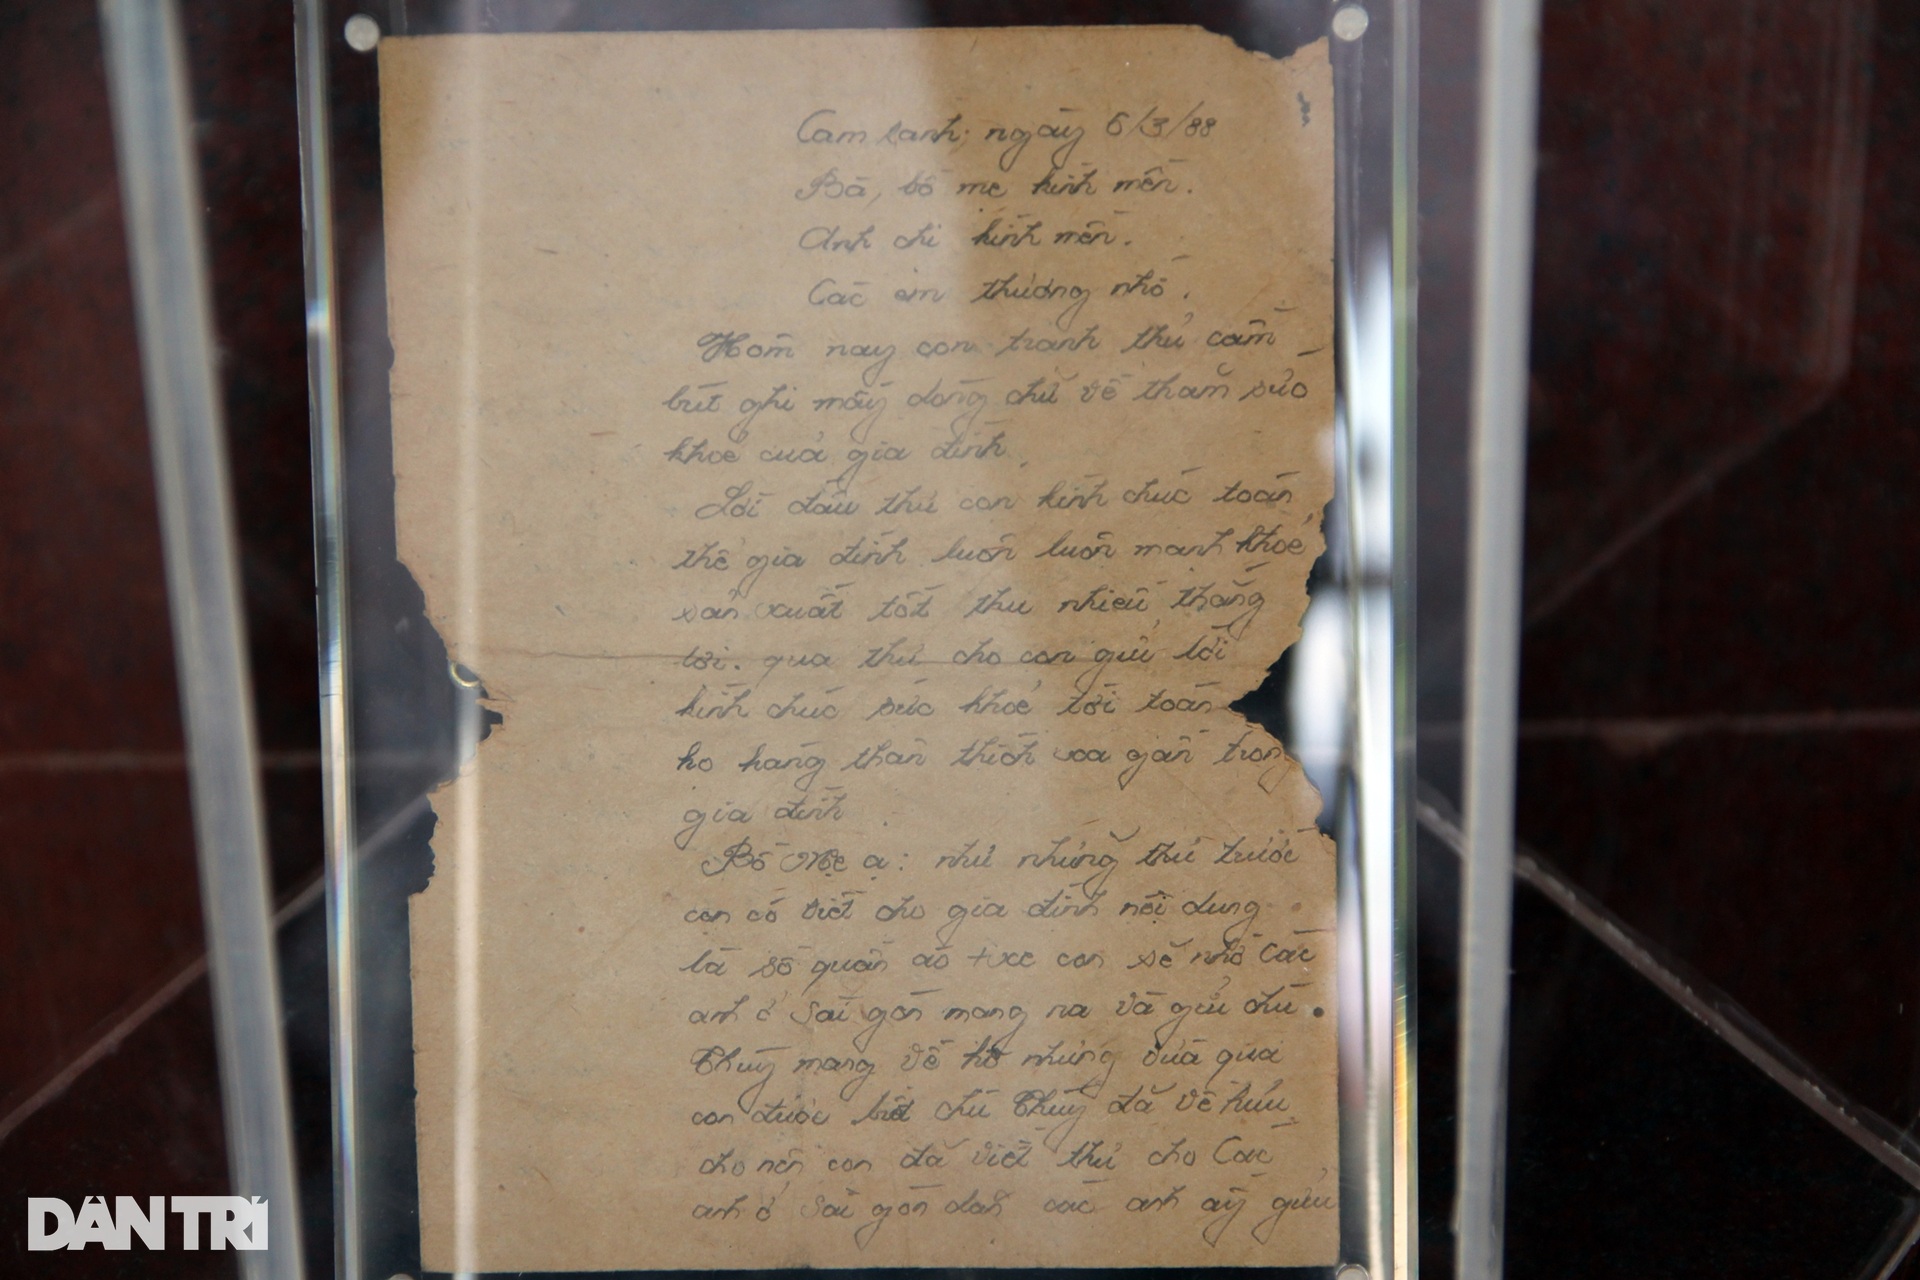 Cam Ranh; ngày 6/3/88
Bà, bố mẹ kính mến.
Anh chị kính mến.
Các em thương nhớ.
Hôm nay con tranh thủ cầm
bút ghi mấy dòng chữ về thăm sức
khoẻ của gia đình.
Lời đầu thư con kính chúc toàn
thể gia đình luôn luôn mạnh khoẻ
sản xuất tốt thu nhiều thắng
lợi. qua thư cho con gửi lời
kính chúc sức khoẻ tới toàn
họ hàng thân thích xa gần trong
gia đình
Bố Mẹ ạ: như những thư trước
con có viết cho gia đình nội dung
là số quần áo + xe con sẽ nhờ các
anh ở Sài gòn mang ra và gửi chú.
Thuỷ mang về hộ nhưng vừa qua
con được biết chú Thuỷ đã về hưu
cho nên con đã viết thư cho Các
anh ở Sài gòn dặn các anh ấy gửi
DÂN TRÍ